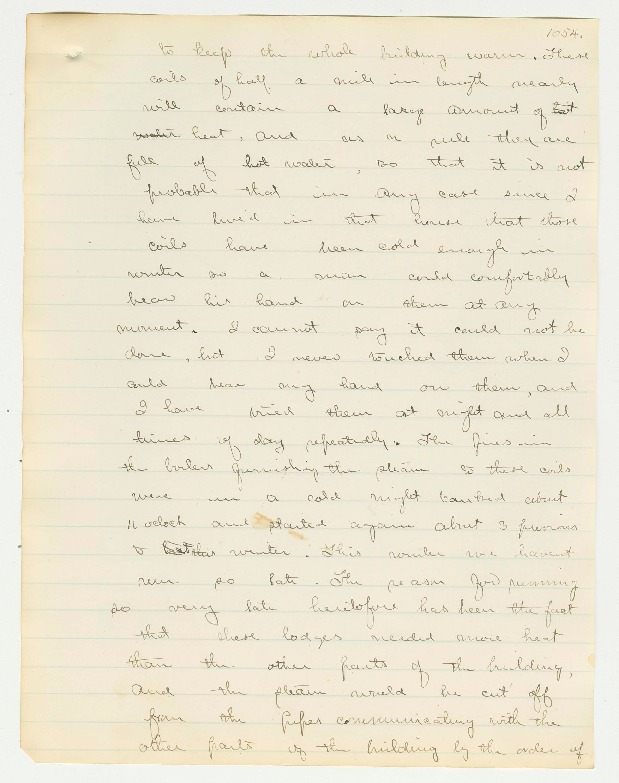 1054.
to keep the whole building warm. These
coils of half a mile in length nearly
will contain a large amount of hot
water heat, and as a rule they are
full of hot water, so that it is not
probable that in any case since I
have lived in that house that those
coils have been cold enough in
winter so a man could comfortably
bear his hand on them at any
moment. I cannot say it could not be
done, but I never touched them when I
could bear my hand on them, and
I have tried them at night and all
times of day repeatedly. The fires in
the boilers furnishing the steam to these coils
were in a cold night banked about
11 oclock and started again about 3 previous
to this winter. This winter we havent
run so late. The reason for running
so very late heretofore has been the fact
that these lodges needed more heat
than the other parts of the building,
and the steam would be cut off
from the pipes communicating with the
other parts of the building by the order of